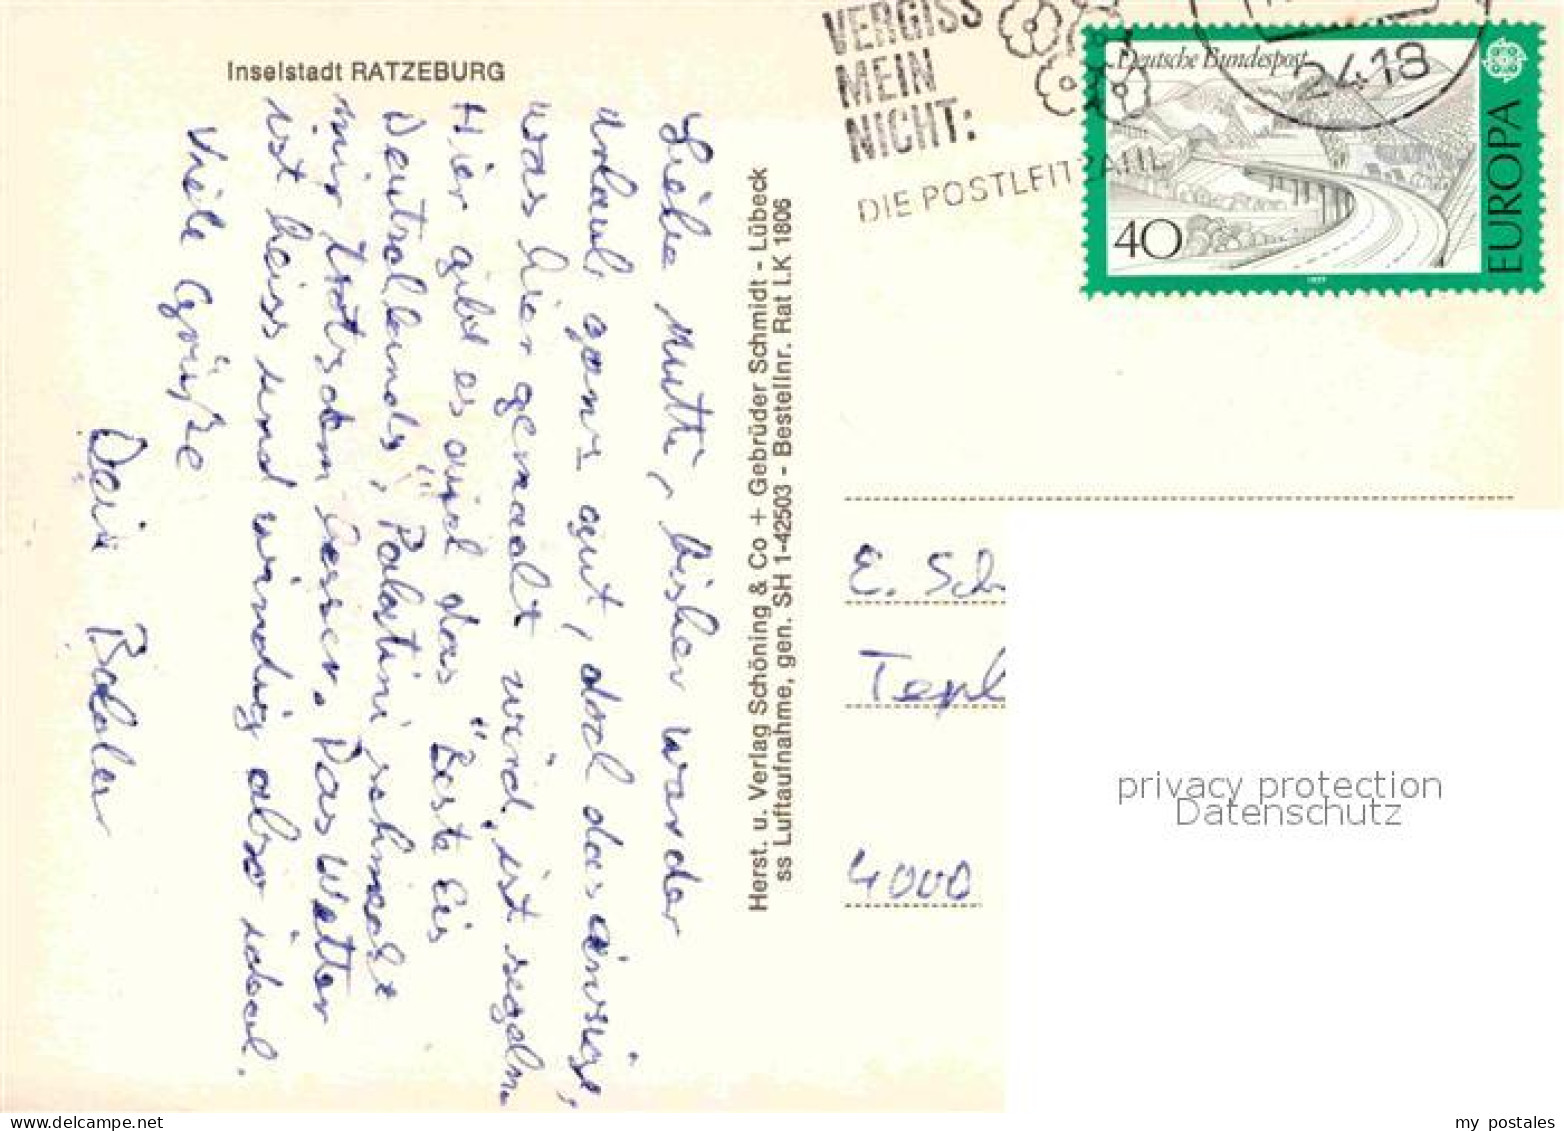 Inselstadt RATZEBURG
Liebe Mutti, bisher war der
Urlaub ganz gut, doch das einzige,
was hier gemacht wird, ist segeln.
Hier gibt es wird das "Beste Eis
Deutschlands", Palatini schmeckt
mir trotzdem besser. Das Wetter
ist heiss und windig also ideal.
Viele Grüße
Dein
Herst. u. Verlag Schöning & Co + Gebrüder Schmidt - Lübeck
ss Luftaufnahme, gen. SH 1-42503 - Bestellnr. Rat LK 1806
VERGISS
MEIN
NICHT:
DIE POSTLEITZAHL
2418
Deutsche Bundespost
40
EUROPA
1977
E. Sch
Tepl
4000
privacy protection
Datenschutz
my postales
www.delcampe.net